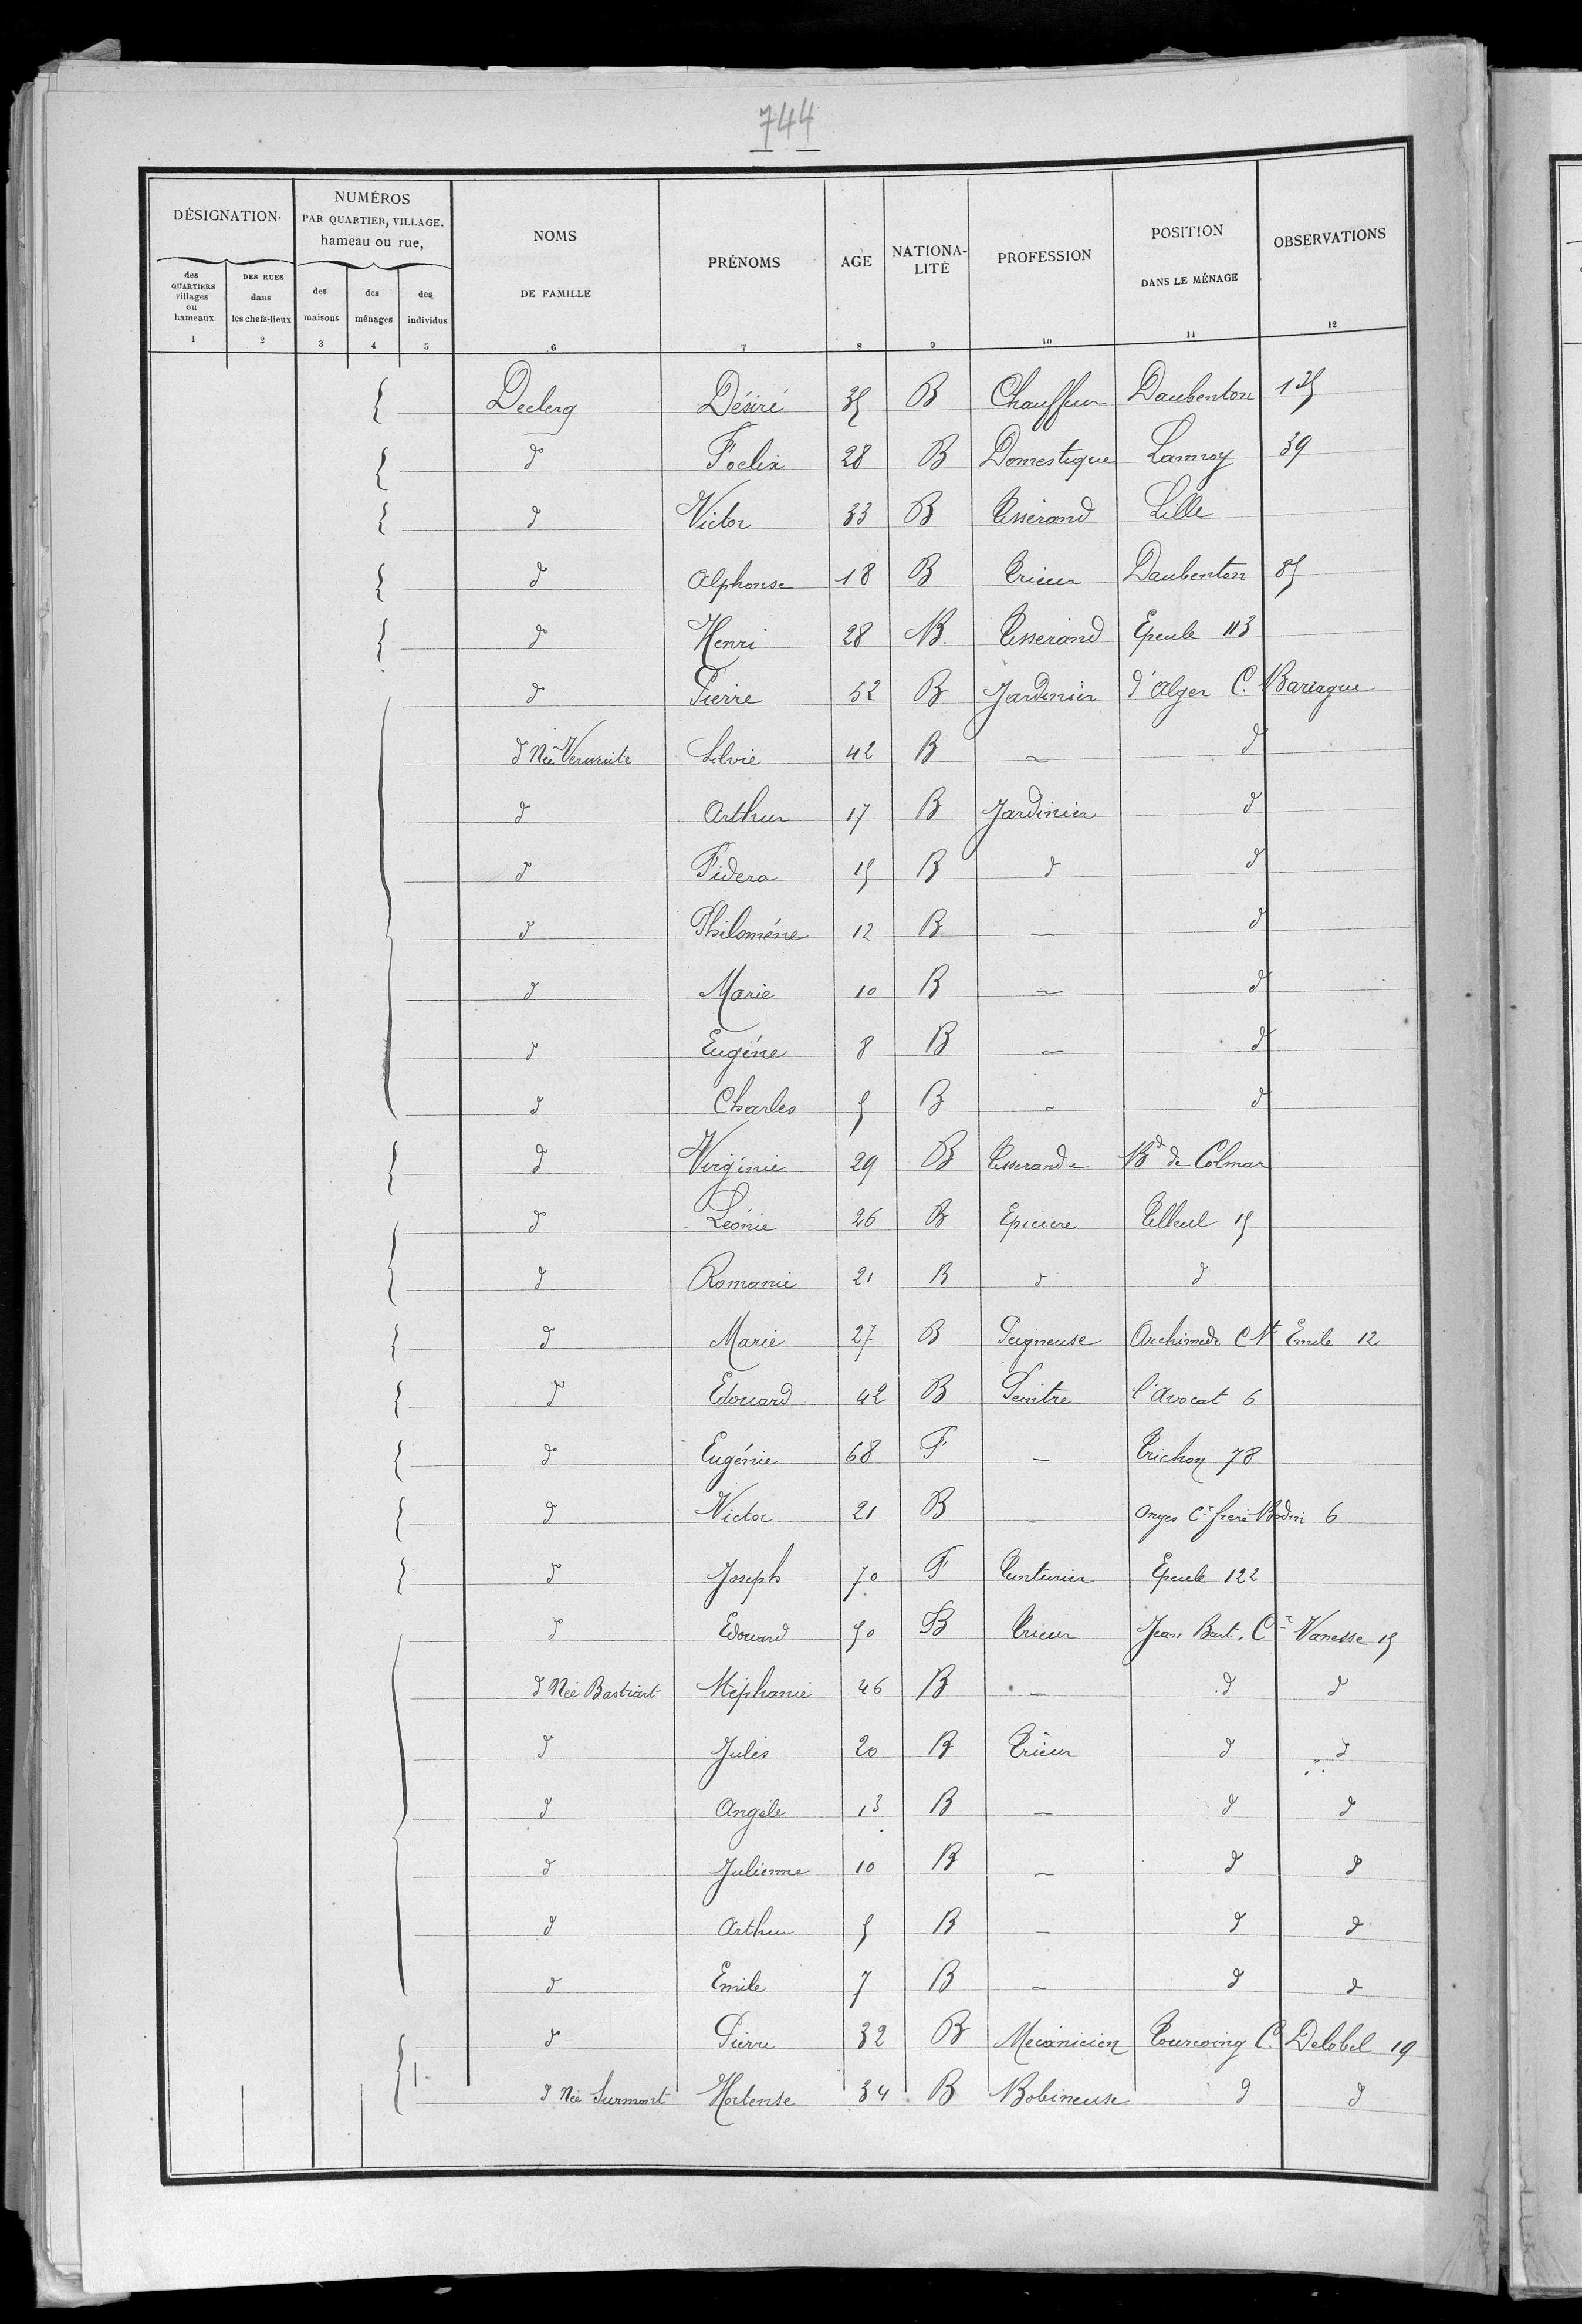 744
DÉSIGNATION.
NUMÉROS
PAR QUARTIER, VILLAGE.
hameau ou rue,
des QUARTIERS villages ou hameaux
DES RUES dans les chefs-lieux
des maisons
des ménages
des individus
NOMS DE FAMILLE
PRÉNOMS
AGE
NATIONA-LITÉ
PROFESSION
POSITION DANS LE MÉNAGE
OBSERVATIONS
1 2 3 4 5 6 7 8 9 10 11 12
Declerq Désiré 35 B Chauffeur Daubenton 125
d Foelix 28 B Domestique Lannoy 39
d Victor 33 B Tisserand Lille
d Alphonse 18 B Trieur Daubenton 85
d Henri 28 B. Tisserand Epeule 113
d Pierre 52 B Jardinier d'Alger C. Bariague
d Née Silvie 42 B – d
d Arthur 17 B Jardinier d
d Fidera 15 B d d
d Philoméne 12 B – d
d Marie 10 B – d
d Eugéne 8 B – d
d Charles 5 B – d
d Virginie 29 B Tisserande Bd de Colmar
d Léonie 26 B Epiciere Tilleul 15
d Romanie 21 B d d
d Marie 27 B Peigneuse Archimede C St Emile 12
d Edouard 42 B Peintre l'Avocat 6
d Eugénie 68 F – Trichon 78
d Victor 21 B – Anges Cé frere 6
d Joseph 70 F Tinturier Epeule 122
d Edouard 50 B Trieur Jean Bart. Cé Vanesse 15
d Née Bastiart Stéphanie 46 B – d d
d Jules 20 B Trieur d d
d Angele 13 B – d d
d Julienne 10 B – d d
d Arthur 5 B – d d
d Emile 7 B – d d
d Pierre 32 B Mecanicien Tourcoing C. Delobel 19
d Née Surmont Hortense 34 B Bobineuse d d